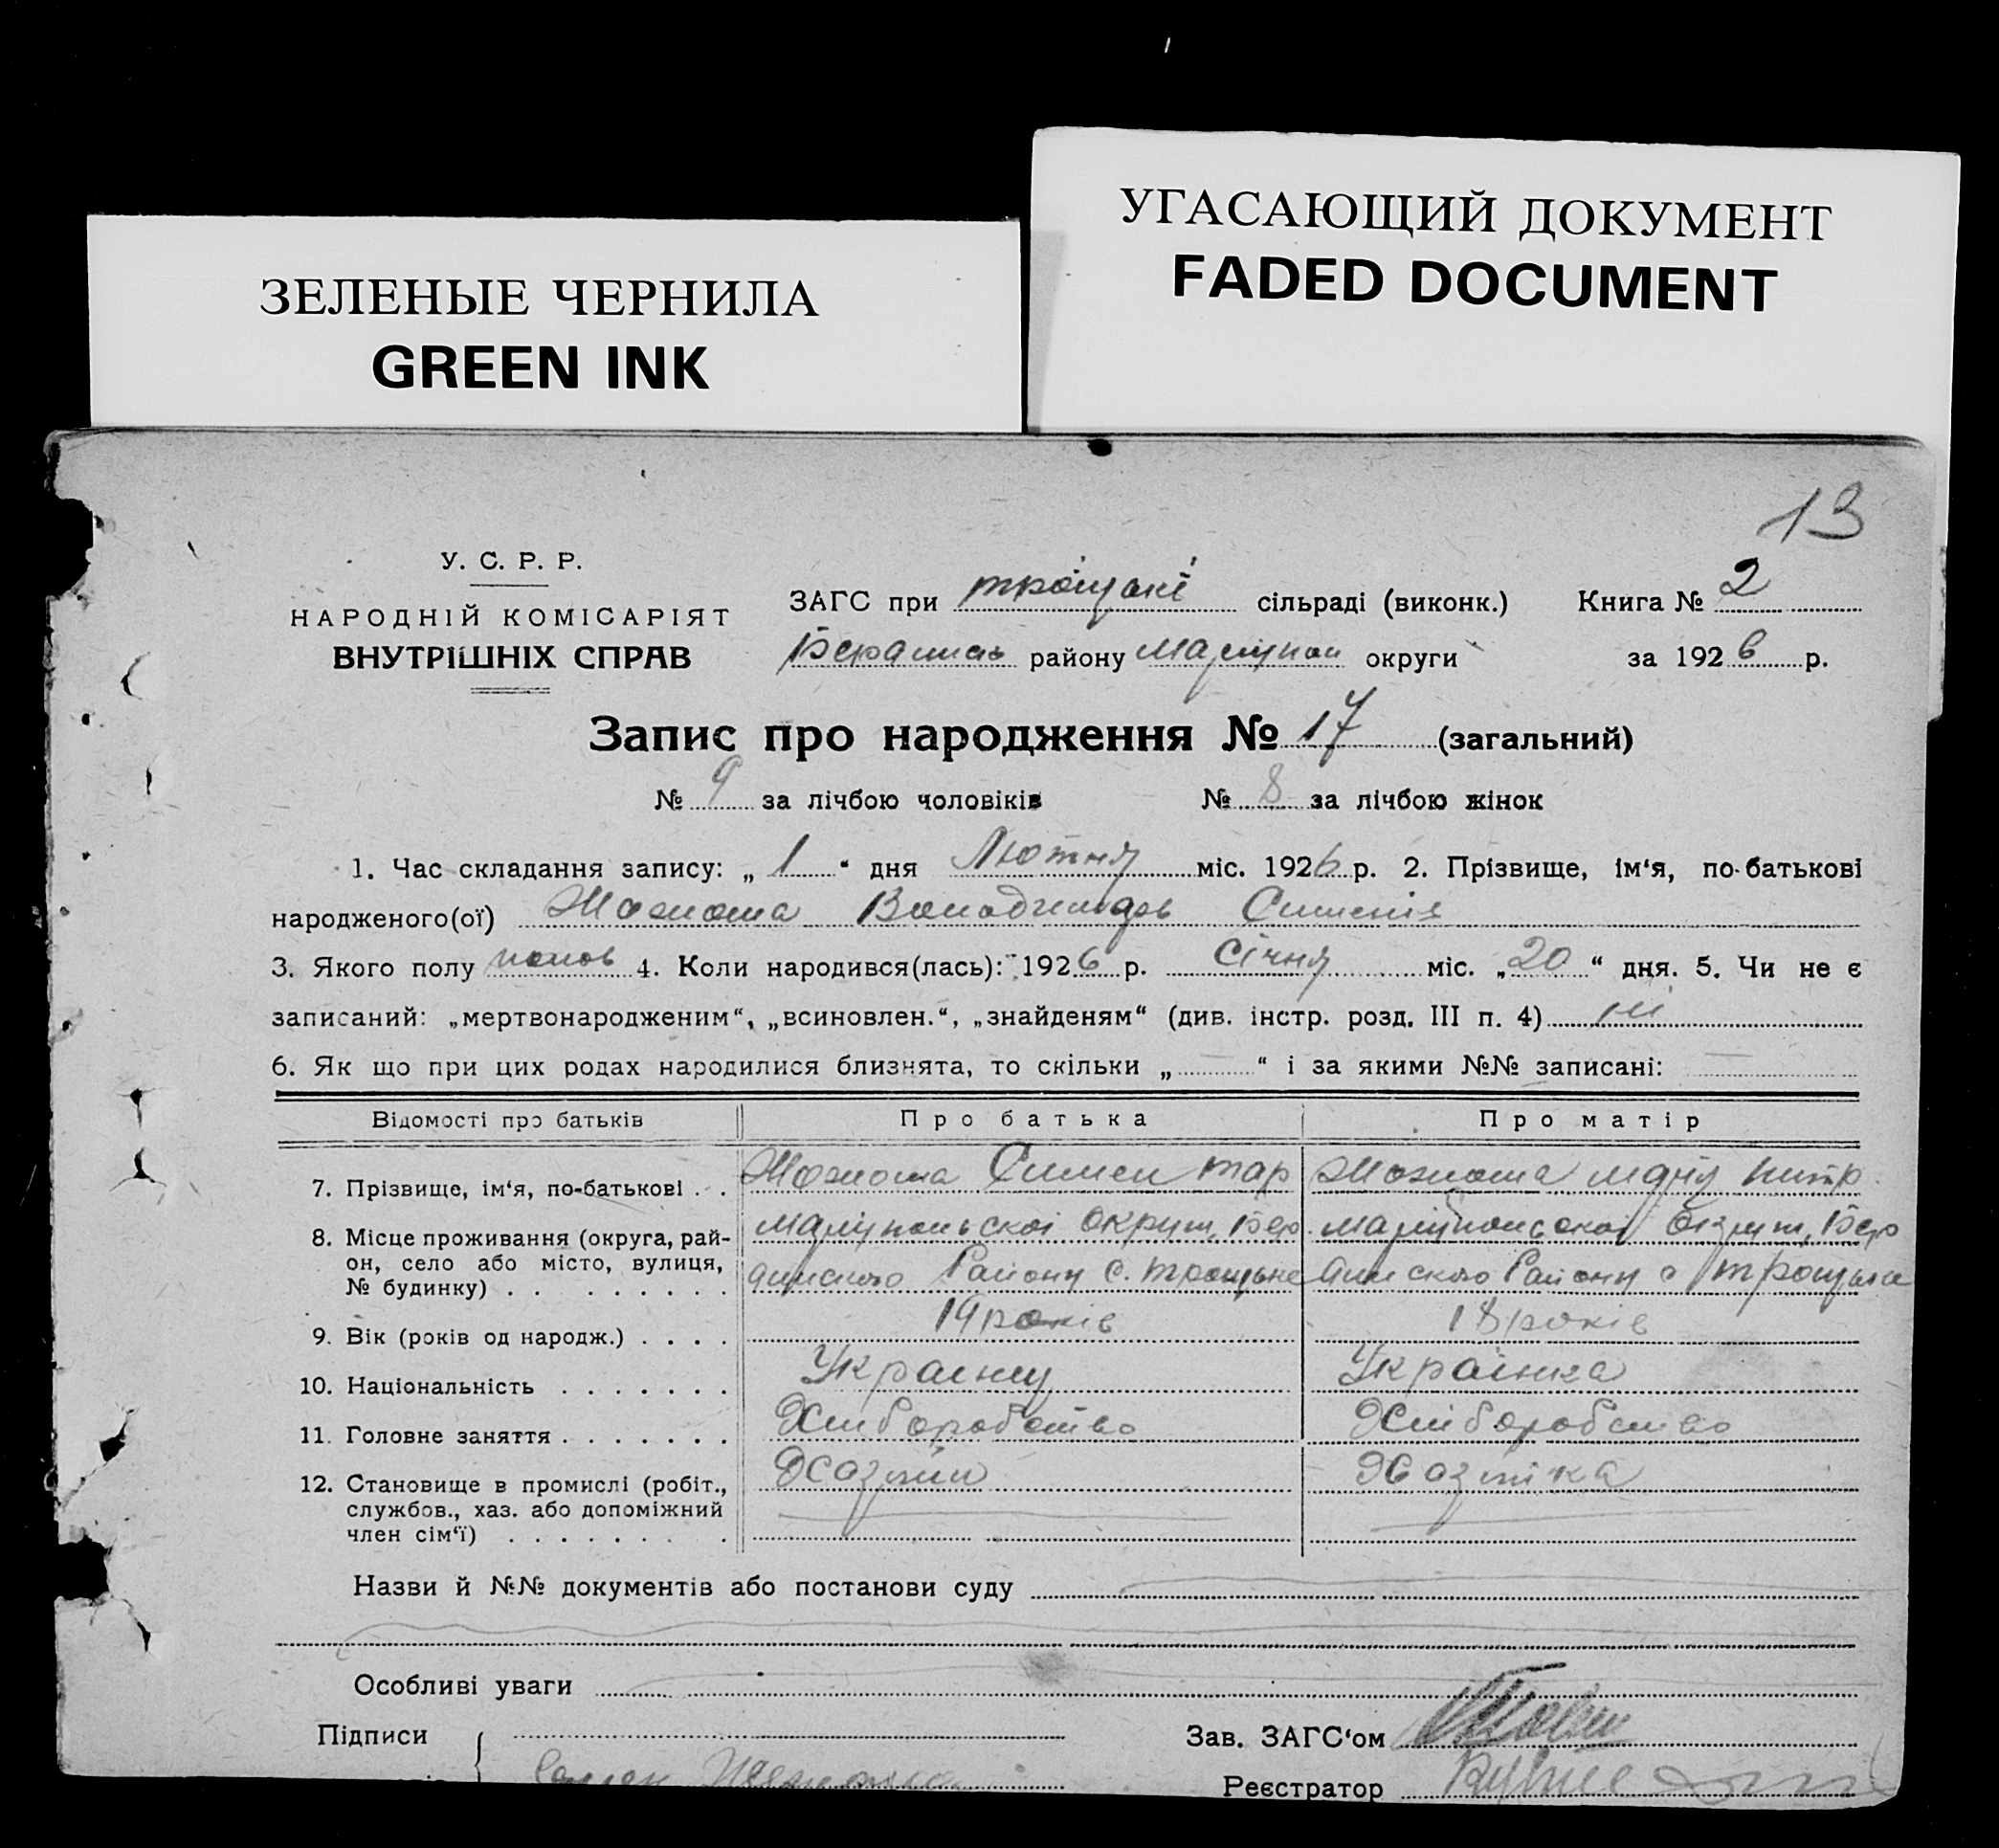 УГАСАЮЩИЙ ДОКУМЕНТ
FADED DOCUMENT
ЗЕЛЕНЫЕ ЧЕРНИЛА
GREEN INK
13
У. С. Р. Р.
НАРОДНІЙ КОМІСАРІЯТ
ВНУТРІШНІХ СПРАВ
ЗАГС при сільраді (виконк.) Книга № 2
району Маріупол округи за 1926 р.
Запис про народження № 17 (загальний)
№ 9 за лічбою чоловіків № 8 за лічбою жінок
1. Час складання запису: „ 1 “ дня Лютня міс. 1926 р. 2. Прізвище, ім‘я, по-батькові
народженого(ої)
3. Якого полу 4. Коли народився(лась): 1926 р. Січня міс. „20“ дня. 5. Чи не є
записаний: „мертвонародженим“, „всиновлен.“, „знайденям“ (див. інстр. розд. III п. 4) ні
6. Як що при цих родах народилися близнята, то скільки „ “ і за якими №№ записані:
Відомості про батьків Про батька Про матір
7. Прізвище, ім‘я, по-батькові . . Симен
8. Місце проживання (округа, рай- Маріупольскоі Округи, Бер Маріупольскоі Округи, Бер
он, село або місто, вулиця, Району с. Району с
№ будинку) . . . . . . . .
9. Вік (років од народж.) . . . . 19 років 18 років
10. Національність . . . . . . . Украінец Украінка
11. Головне заняття . . . . . . . Хліборобство Хліборобство
12. Становище в промислі (робіт., Хозяїн Хозяїка
службов., хаз. або допоміжний
член сім‘ї) . . . . . . . .
Назви й №№ документів або постанови суду
Особливі уваги
Підписи Зав. ЗАГС‘ом
Реєстратор